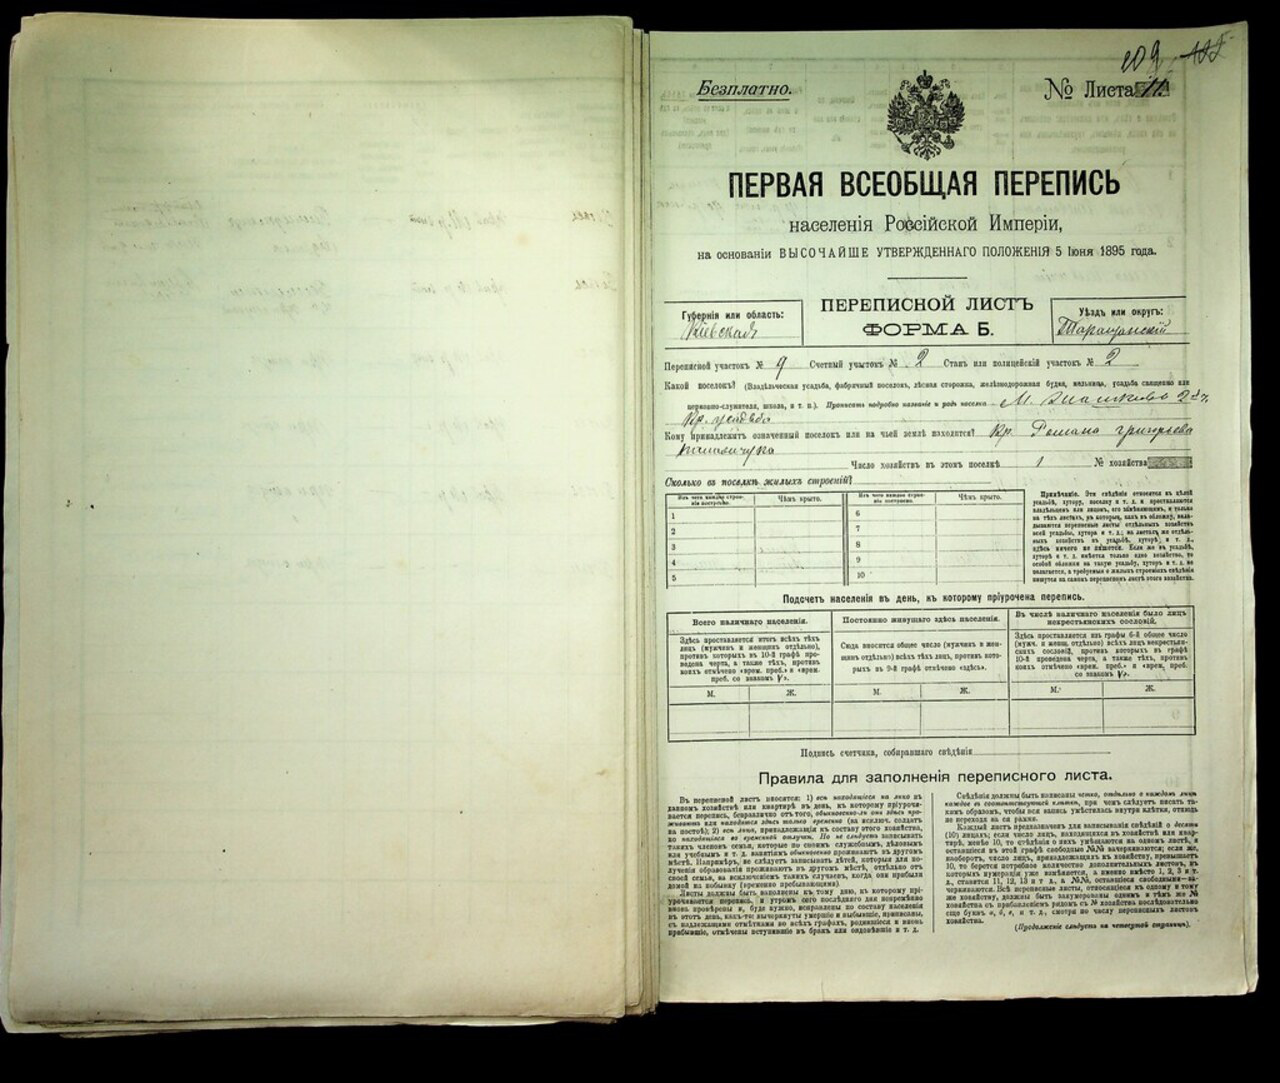 209
Безплатно.
№ Листа 11.
ПЕРВАЯ ВСЕОБЩАЯ ПЕРЕПИСЬ
населенія Россійской Имперіи,
на основаніи ВЫСОЧАЙШЕ УТВЕРЖДЕННАГО ПОЛОЖЕНІЯ 5 Іюня 1895 года.
Губернія или область:
Кіевская
ПЕРЕПИСНОЙ ЛИСТЪ
ФОРМА Б.
Уѣздъ или округъ:
Таращанскій
Переписной участокъ № 9 Счетный участокъ № 2 Станъ или полицейскій участокъ № 2
Какой поселокъ? (Владѣльческая усадьба, фабричный поселокъ, лѣсная сторожка, желѣзнодорожная будка, мельница, усадьба священно или
церковно-служителя, школа, и т. п.). Прописать подробно названіе и родъ поселка М.
Кр. усадьба
Кому принадлежитъ означенный поселокъ или на чьей землѣ находится? Кр. Романа Григорьева
Число хозяйствъ въ этомъ поселкѣ 1 № хозяйства
Сколько въ поселкѣ жилыхъ строеній?
Изъ чего каждое строеніе построено. Чѣмъ крыто. Изъ чего каждое строеніе построено. Чѣмъ крыто.
1 6
2 7
3 8
4 9
5 10
Примѣчаніе. Эти свѣдѣнія относятся къ цѣлой
усадьбѣ, хутору, поселку и т. д. и проставляются
владѣльцемъ или лицомъ, его замѣняющимъ, и только
на тѣхъ листахъ, въ которые, какъ въ обложку, вкла-
дываются переписные листы отдѣльныхъ хозяйствъ
всей усадьбы, хутора и т. д.; на листахъ же отдѣль-
ныхъ хозяйствъ въ усадьбѣ, хуторѣ и т. д.,
здѣсь ничего не пишется. Если же въ усадьбѣ,
хуторѣ и т. д. имѣется только одно хозяйство, то
особой обложки на такую усадьбу, хуторъ и т. д. не
полагается, а требуемыя о жилыхъ строеніяхъ свѣдѣнія
пишутся на самомъ переписномъ листѣ этого хозяйства.
Подсчетъ населенія въ день, къ которому пріурочена перепись.
Всего наличнаго населенія.
Здѣсь проставляется итогъ всѣхъ тѣхъ
лицъ (мужчинъ и женщинъ отдѣльно),
противъ которыхъ въ 10-й графѣ про-
ведена черта, а также тѣхъ, противъ
коихъ отмѣчено «врем. преб.» и «врем.
преб. со знакомъ V».
Постоянно живущаго здѣсь населенія.
Сюда вносится общее число (мужчинъ и жен-
щинъ отдѣльно) всѣхъ тѣхъ лицъ, противъ кото-
рыхъ въ 9-й графѣ отмѣчено «здѣсь».
Въ числѣ наличнаго населенія было лицъ
некрестьянскихъ сословій.
Здѣсь проставляется изъ графы 6-й общее число
(мужч. и женщ. отдѣльно) всѣхъ лицъ некрестьян-
скихъ сословій, противъ которыхъ въ графѣ
10-й проведена черта, а также тѣхъ, противъ
коихъ отмѣчено «врем. преб.» и «врем. преб.
со знакомъ V».
М. Ж. М. Ж. М. Ж.
Подпись счетчика, собиравшаго свѣдѣнія
Правила для заполненія переписного листа.
Въ переписной листъ вносятся: 1) всѣ находящіеся на лицо въ
данномъ хозяйствѣ или квартирѣ въ день, къ которому пріурочи-
вается перепись, безразлично отъ того, обыкновенно-ли они здѣсь про-
живаютъ или находятся здѣсь только временно (за исключ. солдатъ
на постоѣ); 2) всѣ лица, принадлежащія къ составу этого хозяйства,
но находящіяся въ временной отлучкѣ. Но не слѣдуетъ записывать
такихъ членовъ семьи, которые по своимъ служебнымъ, дѣловымъ
или учебнымъ и т. д. занятіямъ обыкновенно проживаютъ въ другомъ
мѣстѣ. Напримѣръ, не слѣдуетъ записывать дѣтей, которыя для по-
лученія образованія проживаютъ въ другомъ мѣстѣ, отдѣльно отъ
своей семьи, за исключеніемъ такихъ случаевъ, когда они прибыли
домой на побывку (временно пребывающими).
Листы должны быть наполнены къ тому дню, къ которому прі-
урочивается перепись, и утромъ сего послѣдняго дня непремѣнно
вновь провѣрены и, буде нужно, исправлены по составу населенія
въ этотъ день, какъ-то: вычеркнуты умершіе и выбывшіе, приписаны,
съ надлежащими отмѣтками во всѣхъ графахъ, родившіеся и вновь
прибывшіе, отмѣчены вступившіе въ бракъ или овдовѣвшіе и т. д.
Свѣдѣнія должны быть написаны четко, отдѣльно о каждомъ лицѣ
каждое въ соотвѣтствующей клѣткѣ, при чемъ слѣдуетъ писать та-
кимъ образомъ, чтобы вся запись умѣстилась внутри клѣтки, отнюдь
не переходя за ея рамки.
Каждый листъ предназначенъ для записыванія свѣдѣній о десяти
(10) лицахъ; если число лицъ, находящихся въ хозяйствѣ или квар-
тирѣ, менѣе 10, то свѣдѣнія о нихъ умѣщаются на одномъ листѣ, а
оставшіеся въ этой графѣ свободные №№ зачеркиваются; если же,
наоборотъ, число лицъ, принадлежащихъ къ хозяйству, превышаетъ
10, то берется потребное количество дополнительныхъ листовъ, въ
которыхъ нумерація уже измѣняется, а именно вмѣсто 1, 2, 3 и т.
д., ставится 11, 12, 13 и т. д., а №№, оставшіеся свободными—за-
черкиваются. Всѣ переписные листы, относящіеся къ одному и тому
же хозяйству, должны быть занумерованы однимъ и тѣмъ же №
хозяйства съ прибавленіемъ рядомъ съ № хозяйства послѣдовательно
еще буквъ а, б, в, и т. д., смотря по числу переписныхъ листовъ
хозяйства.
(Продолженіе слѣдуетъ на четвертой страницѣ).